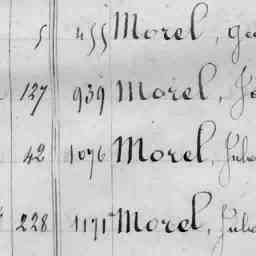 5 455 Morel,
127 939 Morel,
42 1076 Morel, Jules
228 1171 Morel, Jules